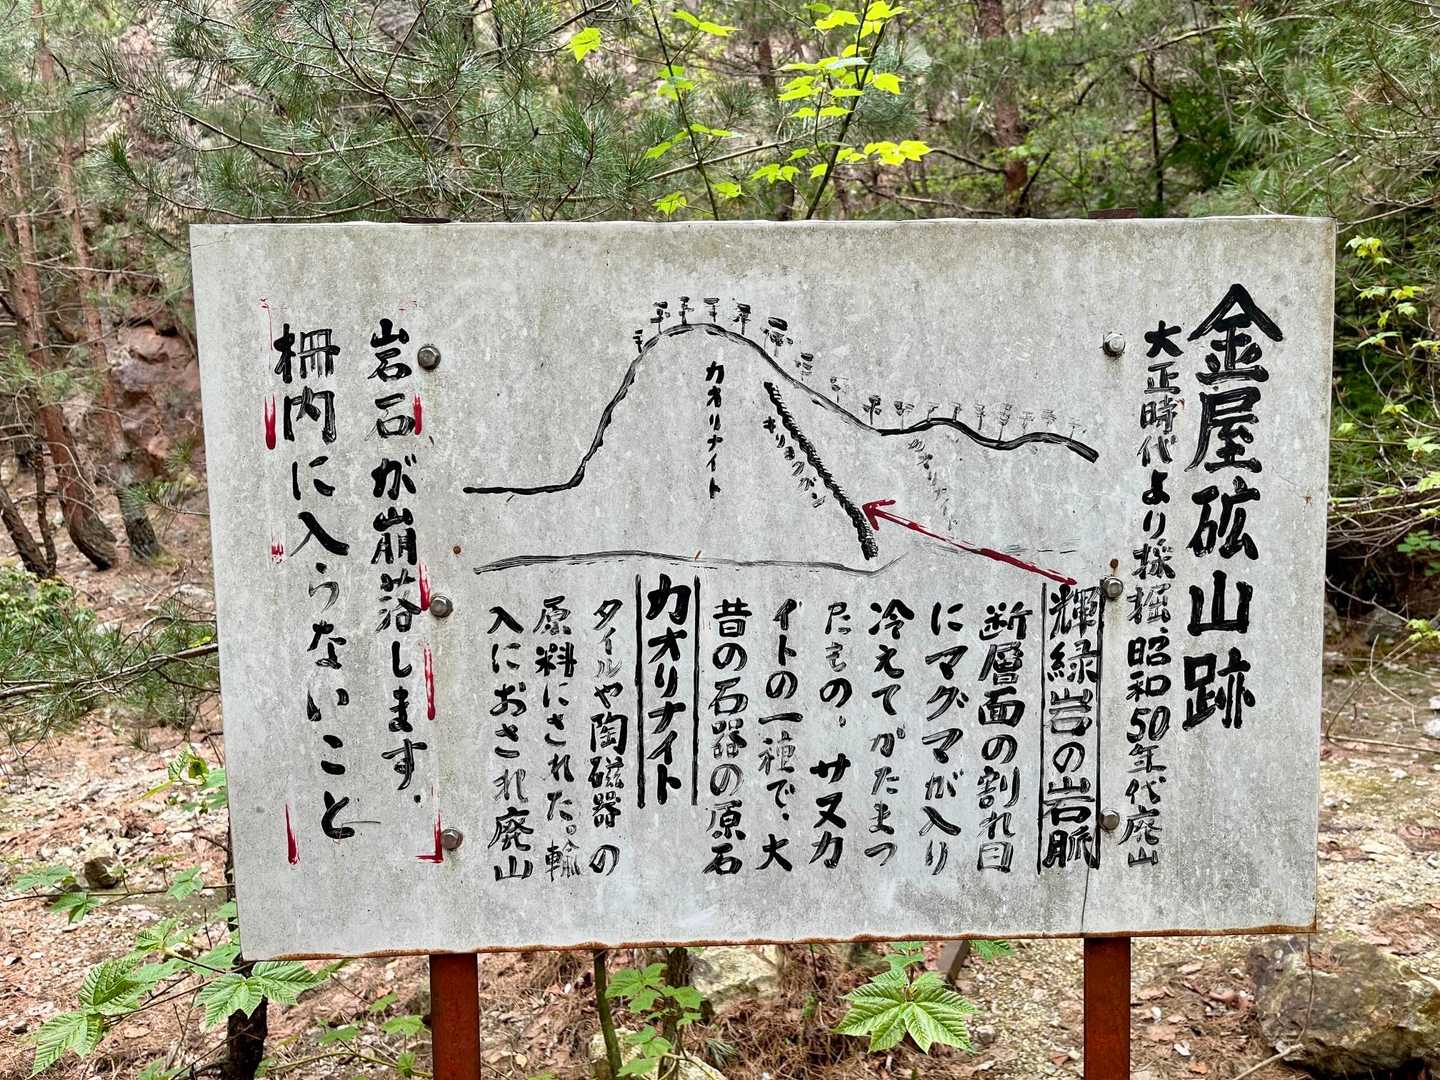 金屋砿山跡
大正時代より採掘、昭和50年代廃山
輝緑岩の岩脈
断層面の割れ目
にマグマが入り
冷えてかたまっ
たもの。サヌカ
イトの一種で、大
昔の石器の原石
カオリナイト
タイルや陶磁器の
原料にされた。輸
入におされ廃山
カオリナイト
キリョクガン
カオリナイト
岩石が崩落します。
柵内に入らないこと